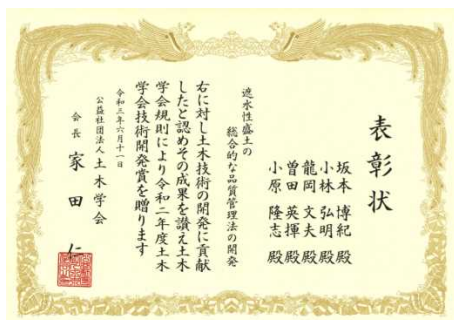 表彰状
坂本 博紀殿
小林 弘明殿
龍岡 文夫殿
曽田 英揮殿
小原 隆志殿
遮水性盛土の
総合的な品質管理法の開発
右に対し土木技術の開発に貢献
したと認めその成果を讃え土木
学会規則により令和二年度土木
学会技術開発賞を贈ります
令和三年六月十一日
公益社団法人土木学会
会長 家田 仁